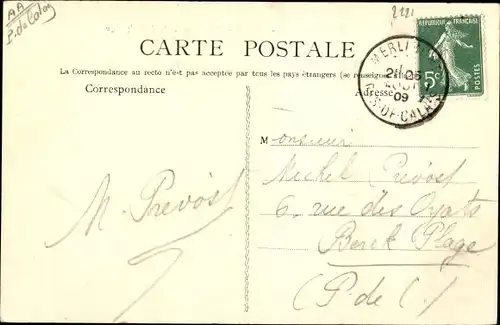 AA
P. de Calais
2221
CARTE POSTALE
La Correspondance au recto n'est pas acceptée par tous les pays étrangers (se renseigner
Correspondance
Adresse
REPUBLIQUE FRANÇAISE
5c
POSTES
MERLI
21 25
09
PAS-DE-CALAIS
Monsieur
Michel Prévost
6, rue des Oyats
Berck Plage
(P. de C.)
M. Prévost